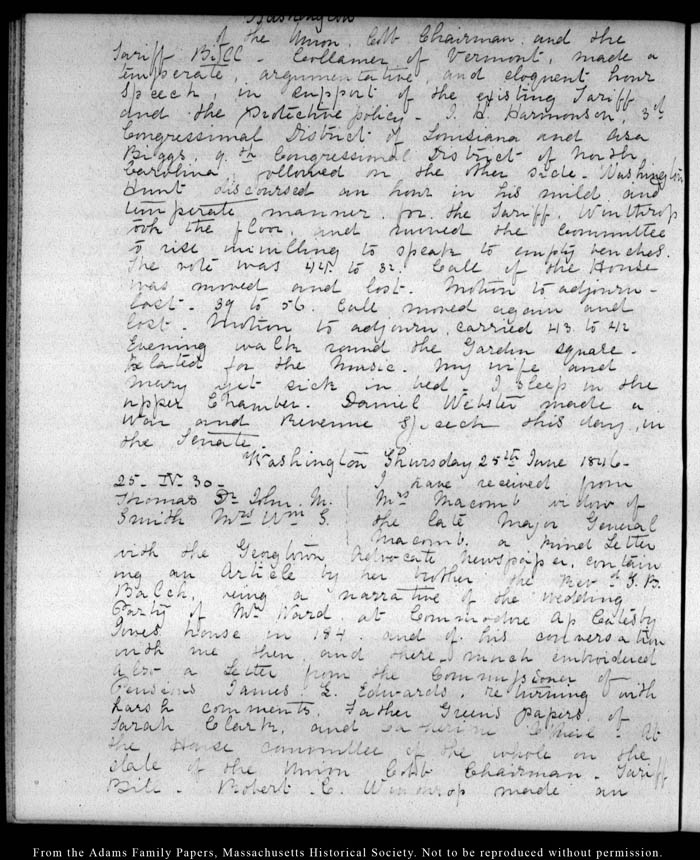 Washington
of the Union, Cobb Chairman, and the
Tariff Bill - Collamer of Vermont, made a
temperate, argumentative, and eloquent hour
Speech, in support of the existing Tariff
and the Protective policy - J. H. Harmonson, 3d
Congressional District of Louisiana and Asa
Biggs, 9.th Congressional District of North
Carolina, followed on the other side. Washington
Hunt discoursed an hour in his mild and
temperate manner for the Tariff. Winthrop
took the floor, and moved the Committee
to rise unwilling to speak to empty benches.
The vote was 45. to 32. Call of the House
was moved and lost. Motion to adjourn -
lost - 39 to 56. Call moved again and
lost. Motion to adjourn, carried 43 to 42
Evening walk round the Garden square -
belated for the Music. My wife and
Mary yet sick in bed - I sleep in the
upper Chamber. Daniel Webster made a
War and Revenue Speech this day, in
the Senate.
Washington Thursday 25th June 1846-
25- IV. 30-
Thomas Dr John. M.
Smith Mrs Wm S.
I have received from
Mrs Macomb widow of
the late Major General
Macomb, a kind Letter
with the Georgtown Advocate Newspaper, contain
ing an Article by her brother the Revd
Balch, being a narrative of the wedding
Party of Mr Ward, at Commodore Ap Catesby
Jones house in 184 and of his conversation
with me then, and there, much embroidered
Also a Letter from the Commissioner of
Pensions James L. Edwards, returning with
harsh comments, Father Greens papers, of
Sarah Clark, and Catherine At
the House committee of the whole on the
state of the Union Cobb Chairman - Tariff
Bill - Robert C. Winthrop made an
From the Adams Family Papers, Massachusetts Historical Society. Not to be reproduced without permission.